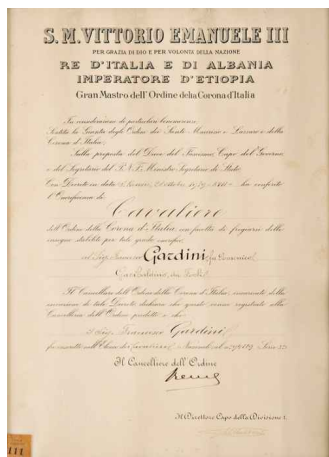 S. M. VITTORIO EMANUELE III
PER GRAZIA DI DIO E PER VOLONTÀ DELLA NAZIONE
RE D'ITALIA E DI ALBANIA
IMPERATORE D'ETIOPIA
Gran Mastro dell'Ordine della Corona d'Italia
In considerazione di particolari benemerenze;
Sentita la Giunta degli Ordini dei Santi Maurizio e Lazzaro e della
Corona d'Italia;
Sulla proposta del Duce del Fascismo, Capo del Governo
e del Segretario del P.N.F. Ministro Segretario di Stato
Con Decreto in data ha conferito
l'Onorificenza di
Cavaliere
dell'Ordine della Corona d'Italia, con facoltà di fregiarsi delle
insegne stabilite per tale grado
al Sig. Francesco Gardini fu Domenico
Il Cancelliere dell'Ordine della Corona d'Italia,
di tale Decreto dichiara che questo venne registrato alla
Cancelleria dell'Ordine predetto e che
il Sig. Francesco Gardini
fu inscritto nell'Elenco dei Cavalieri Nazionali al
Il Cancelliere dell'Ordine
Il Direttore Capo della Divisione I.
111